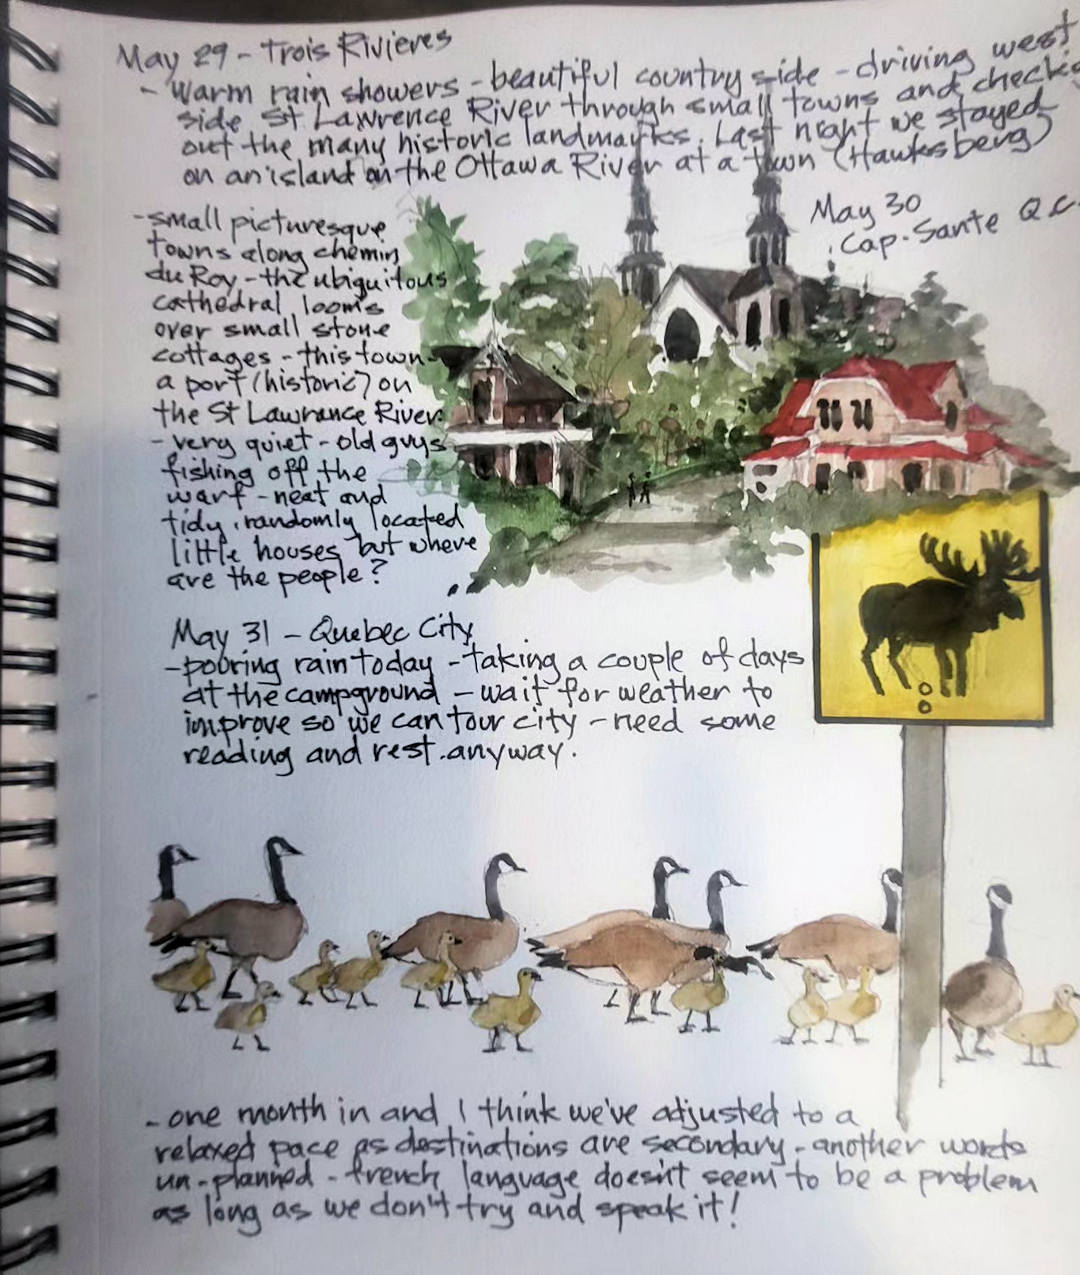 May 29 - Trois Rivieres
- Warm rain showers - beautiful country side - driving west
side St Lawrence River through small towns and checking
out the many historic landmarks. Last night we stayed
on an island on the Ottawa River at a town (Hawksberg)
May 30
Cap. Sante Q.C.
- small picturesque
towns along chemin
du Roy - the ubiquitous
cathedral looms
over small stone
cottages - this town
a port (historic) on
the St Lawrance River
- very quiet - old guys
fishing off the
warf - neat and
tidy, randomly located
little houses but where
are the people?
May 31 - Quebec City
- pouring rain today - taking a couple of days
at the campground - wait for weather to
improve so we can tour city - need some
reading and rest anyway.
- one month in and I think we've adjusted to a
relaxed pace as destinations are secondary - another words
un-planned - french language doesn't seem to be a problem
as long as we don't try and speak it!